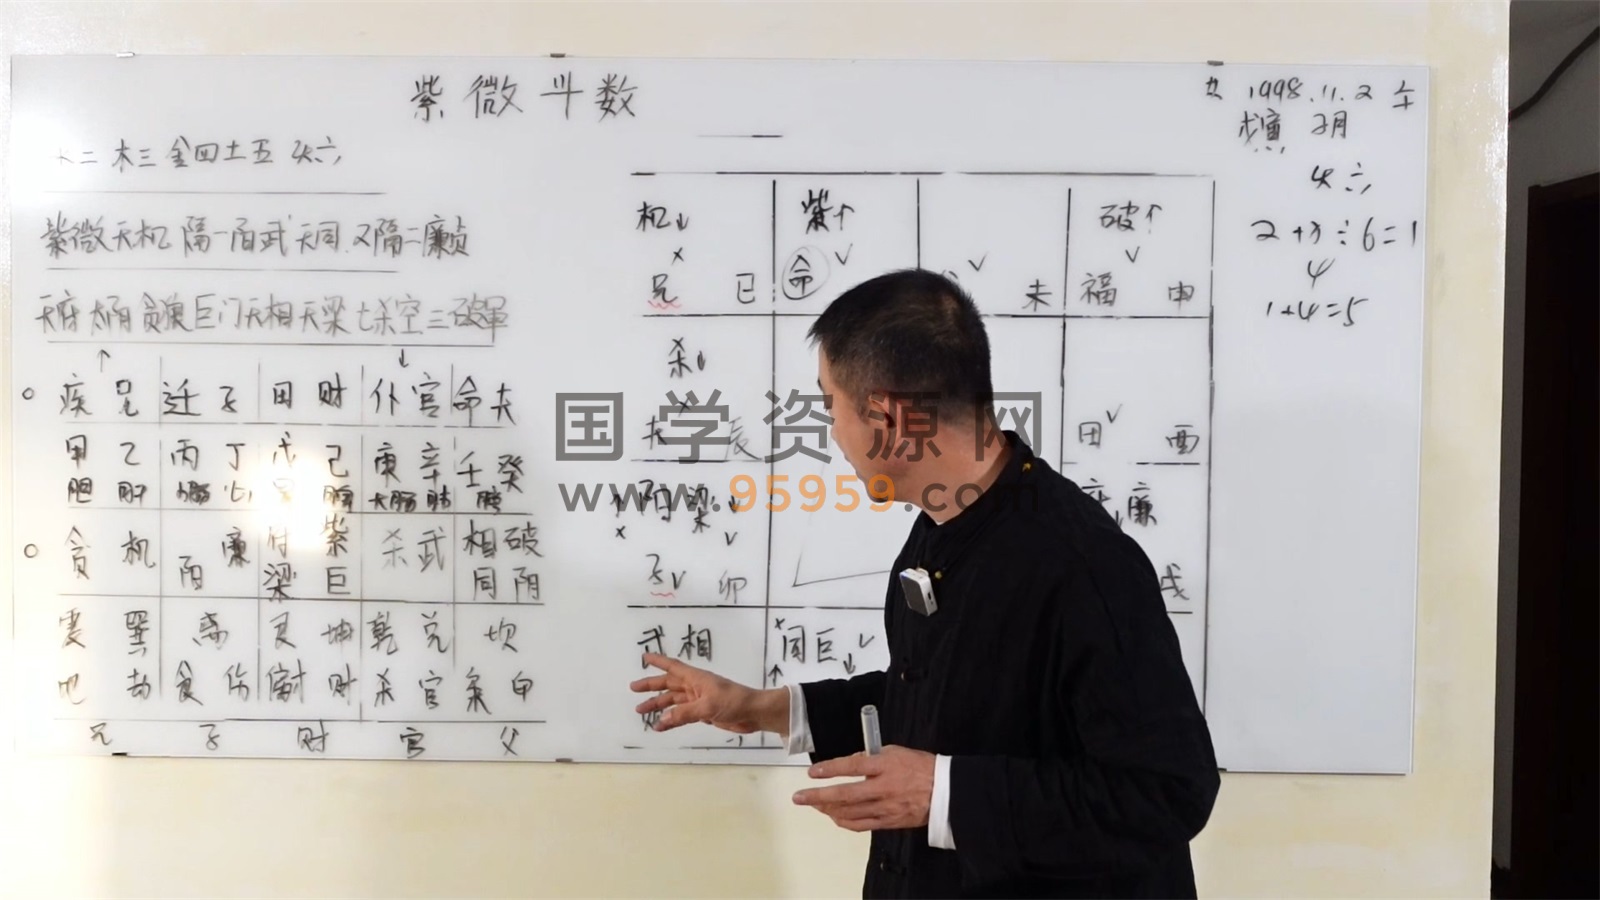 紫微斗数
二 木三 金四 土五 火六
紫微天机 隔一阳武天同 又隔二廉贞
天府太阴贪狼巨门天相天梁七杀空三破军
↑ ↓
疾 兄 迁 子 田 财 仆 官 命 夫
甲 乙 丙 丁 戊 己 庚 辛 壬 癸
胆 肝 小肠 心 大肠 肺
贪 机 阳 廉 府 梁 紫 巨 杀 武 相 同 破 阴
震 巽 离 艮 坤 乾 兑 坎
劫 食 伤 财 杀 官
兄 子 财 官 父
机↓ ×
兄 巳
紫↑ ✓
命
✓
未
破↑ ✓
福 申
× 杀↓
× 夫 辰
田✓ 酉
阳 梁↓ × ✓
子✓ 卯
廉
戌
武 相
× 同 巨 ↓ ✓
↑
女 1998.11.2 午
2月
火六
2+4÷6=1
4
1+4=5
国学资源网
www.95959.com